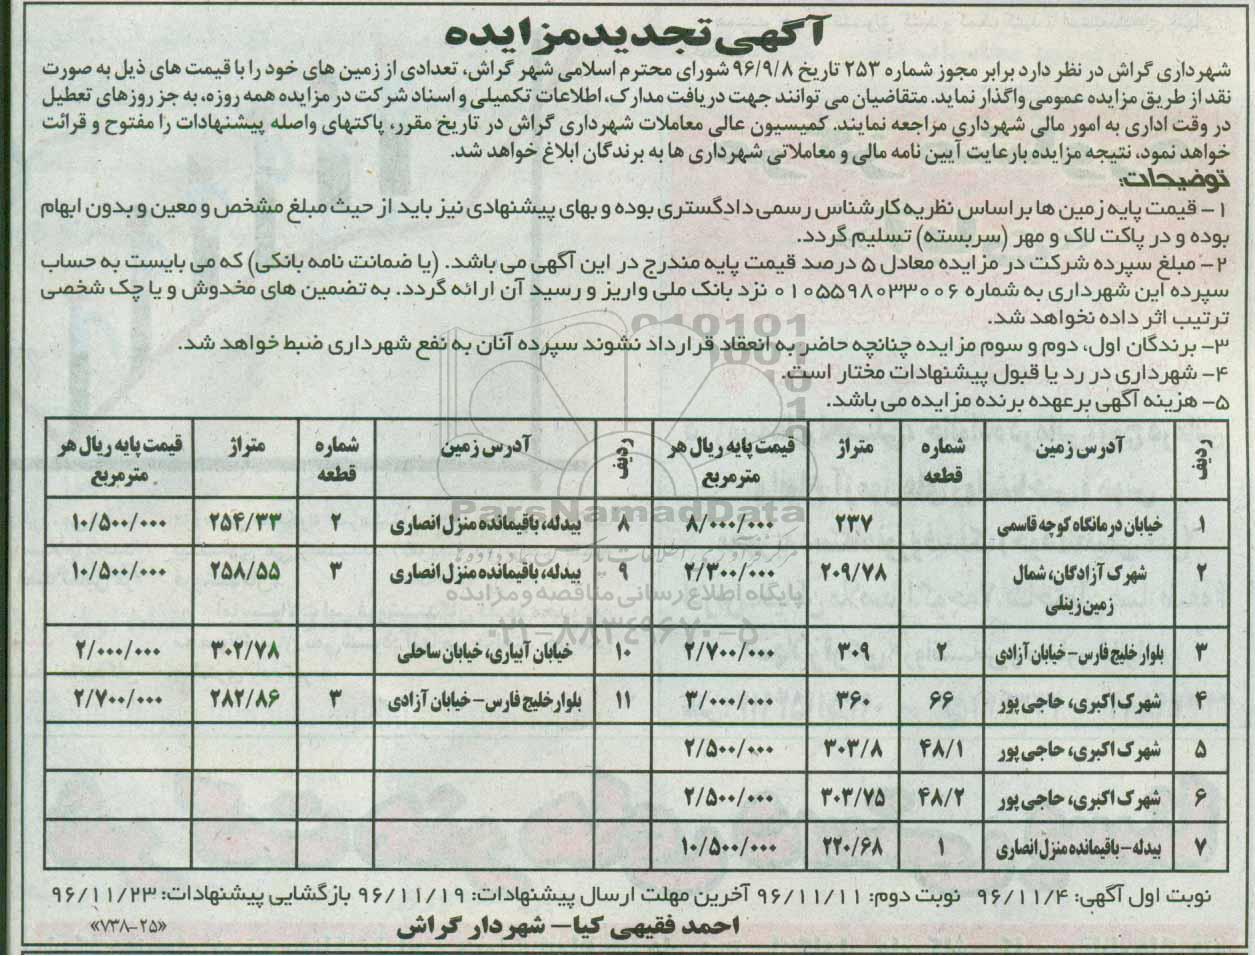 آگهی تجدید مزایده
شهرداری گراش در نظر دارد برابر مجوز شماره ۲۵۳ تاریخ ۹۶/۹/۸ شورای محترم اسلامی شهر گراش، تعدادی از زمین های خود را با قیمت های ذیل به صورت
نقد از طریق مزایده عمومی واگذار نماید. متقاضیان می توانند جهت دریافت مدارک، اطلاعات تکمیلی و اسناد شرکت در مزایده همه روزه، به جز روزهای تعطیل
در وقت اداری به امور مالی شهرداری مراجعه نمایند. کمیسیون عالی معاملات شهرداری گراش در تاریخ مقرر، پاکتهای واصله پیشنهادات را مفتوح و قرائت
خواهد نمود، نتیجه مزایده بارعایت آیین نامه مالی و معاملاتی شهرداری ها به برندگان ابلاغ خواهد شد.
توضیحات:
۱- قیمت پایه زمین ها براساس نظریه کارشناس رسمی دادگستری بوده و بهای پیشنهادی نیز باید از حیث مبلغ مشخص و معین و بدون ابهام
بوده و در پاکت لاک و مهر (سربسته) تسلیم گردد.
۲- مبلغ سپرده شرکت در مزایده معادل ۵ درصد قیمت پایه مندرج در این آگهی می باشد. (یا ضمانت نامه بانکی) که می بایست به حساب
سپرده این شهرداری به شماره ۰۱۰۵۵۹۸۰۳۳۰۰۶ نزد بانک ملی واریز و رسید آن ارائه گردد. به تضمین های مخدوش و یا چک شخصی
ترتیب اثر داده نخواهد شد.
۳- برندگان اول، دوم و سوم مزایده چنانچه حاضر به انعقاد قرارداد نشوند سپرده آنان به نفع شهرداری ضبط خواهد شد.
۴- شهرداری در رد یا قبول پیشنهادات مختار است.
۵- هزینه آگهی برعهده برنده مزایده می باشد.
ردیف آدرس زمین شماره قطعه متراژ قیمت پایه ریال هر مترمربع ردیف آدرس زمین شماره قطعه متراژ قیمت پایه ریال هر مترمربع
۱ خیابان درمانگاه کوچه قاسمی ۲۳۷ ۸/۰۰۰/۰۰۰ ۸ بیدله، باقیمانده منزل انصاری ۲ ۲۵۴/۳۳ ۱۰/۵۰۰/۰۰۰
۲ شهرک آزادگان، شمال زمین زینلی ۲۰۹/۷۸ ۲/۳۰۰/۰۰۰ ۹ بیدله، باقیمانده منزل انصاری ۳ ۲۵۸/۵۵ ۱۰/۵۰۰/۰۰۰
۳ بلوار خلیج فارس - خیابان آزادی ۲ ۳۰۹ ۲/۷۰۰/۰۰۰ ۱۰ خیابان آبیاری، خیابان ساحلی ۳۰۲/۷۸ ۲/۰۰۰/۰۰۰
۴ شهرک اکبری، حاجی پور ۶۶ ۳۶۰ ۳/۰۰۰/۰۰۰ ۱۱ بلوار خلیج فارس - خیابان آزادی ۳ ۲۸۲/۸۶ ۲/۷۰۰/۰۰۰
۵ شهرک اکبری، حاجی پور ۴۸/۱ ۳۰۳/۸ ۲/۵۰۰/۰۰۰
۶ شهرک اکبری، حاجی پور ۴۸/۲ ۳۰۳/۷۵ ۲/۵۰۰/۰۰۰
۷ بیدله - باقیمانده منزل انصاری ۱ ۲۲۰/۶۸ ۱۰/۵۰۰/۰۰۰
نوبت اول آگهی: ۹۶/۱۱/۴ نوبت دوم: ۹۶/۱۱/۱۱ آخرین مهلت ارسال پیشنهادات: ۹۶/۱۱/۱۹ بازگشایی پیشنهادات: ۹۶/۱۱/۲۳
احمد فقیهی کیا - شهردار گراش
«۷۳۸-۲۵»
ParsNamadData
پایگاه اطلاع رسانی مناقصه و مزایده
۰۲۱-۸۸۳۴۹۶۷۰-۵